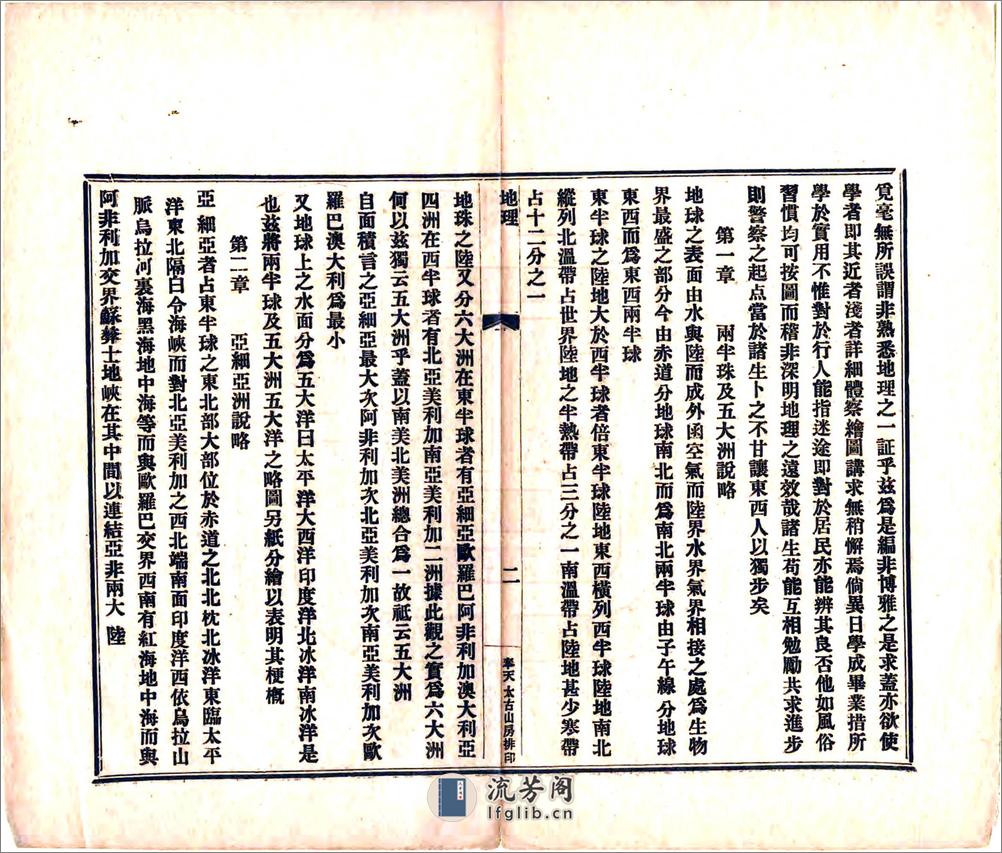 竟毫無所誤謂非熟悉地理之一証乎茲爲是編非博雅之是求蓋亦欲使
學者即其近者淺者詳細體察繪圖講求無稍懈焉倘異日學成畢業措所
學於實用不惟對於行人能指迷途即對於居民亦能辨其良否他如風俗
習慣均可按圖而稽非深明地理之遠效哉諸生苟能互相勉勵共求進步
則警察之起点當於諸生卜之不甘讓東西人以獨步矣
第一章 兩半珠及五大洲說略
地球之表面由水與陸而成外函空氣而陸界水界氣界相接之處爲生物
界最盛之部分今由赤道分地球南北而爲南北兩半球由子午線分地球
東西而爲東西兩半球
東半球之陸地大於西半球者倍東半球陸地東西橫列西半球陸地南北
縱列北溫帶占世界陸地之半熱帶占三分之一南溫帶占陸地甚少寒帶
占十二分之一
地理 二 奉天太古山房排印
地珠之陸又分六大洲在東半球者有亞細亞歐羅巴阿非利加澳大利亞
四洲在西半球者有北亞美利加南亞美利加二洲據此觀之實爲六大洲
何以茲獨云五大洲乎蓋以南美北美洲總合爲一故祗云五大洲
自面積言之亞細亞最大次阿非利加次北亞美利加次南亞美利加次歐
羅巴澳大利爲最小
又地球上之水面分爲五大洋曰太平洋大西洋印度洋北冰洋南冰洋是
也茲將兩半球及五大洲五大洋之略圖另紙分繪以表明其梗概
第二章 亞細亞洲說略
亞細亞者占東半球之東北部大部位於赤道之北北枕北冰洋東臨太平
洋東北隔白令海峽而對北亞美利加之西北端南面印度洋西依烏拉山
脈烏拉河裏海黑海地中海等而與歐羅巴交界西南有紅海地中海而與
阿非利加交界蘇彝士地峽在其中間以連結亞非兩大陸
流芳阁
lfglib.cn